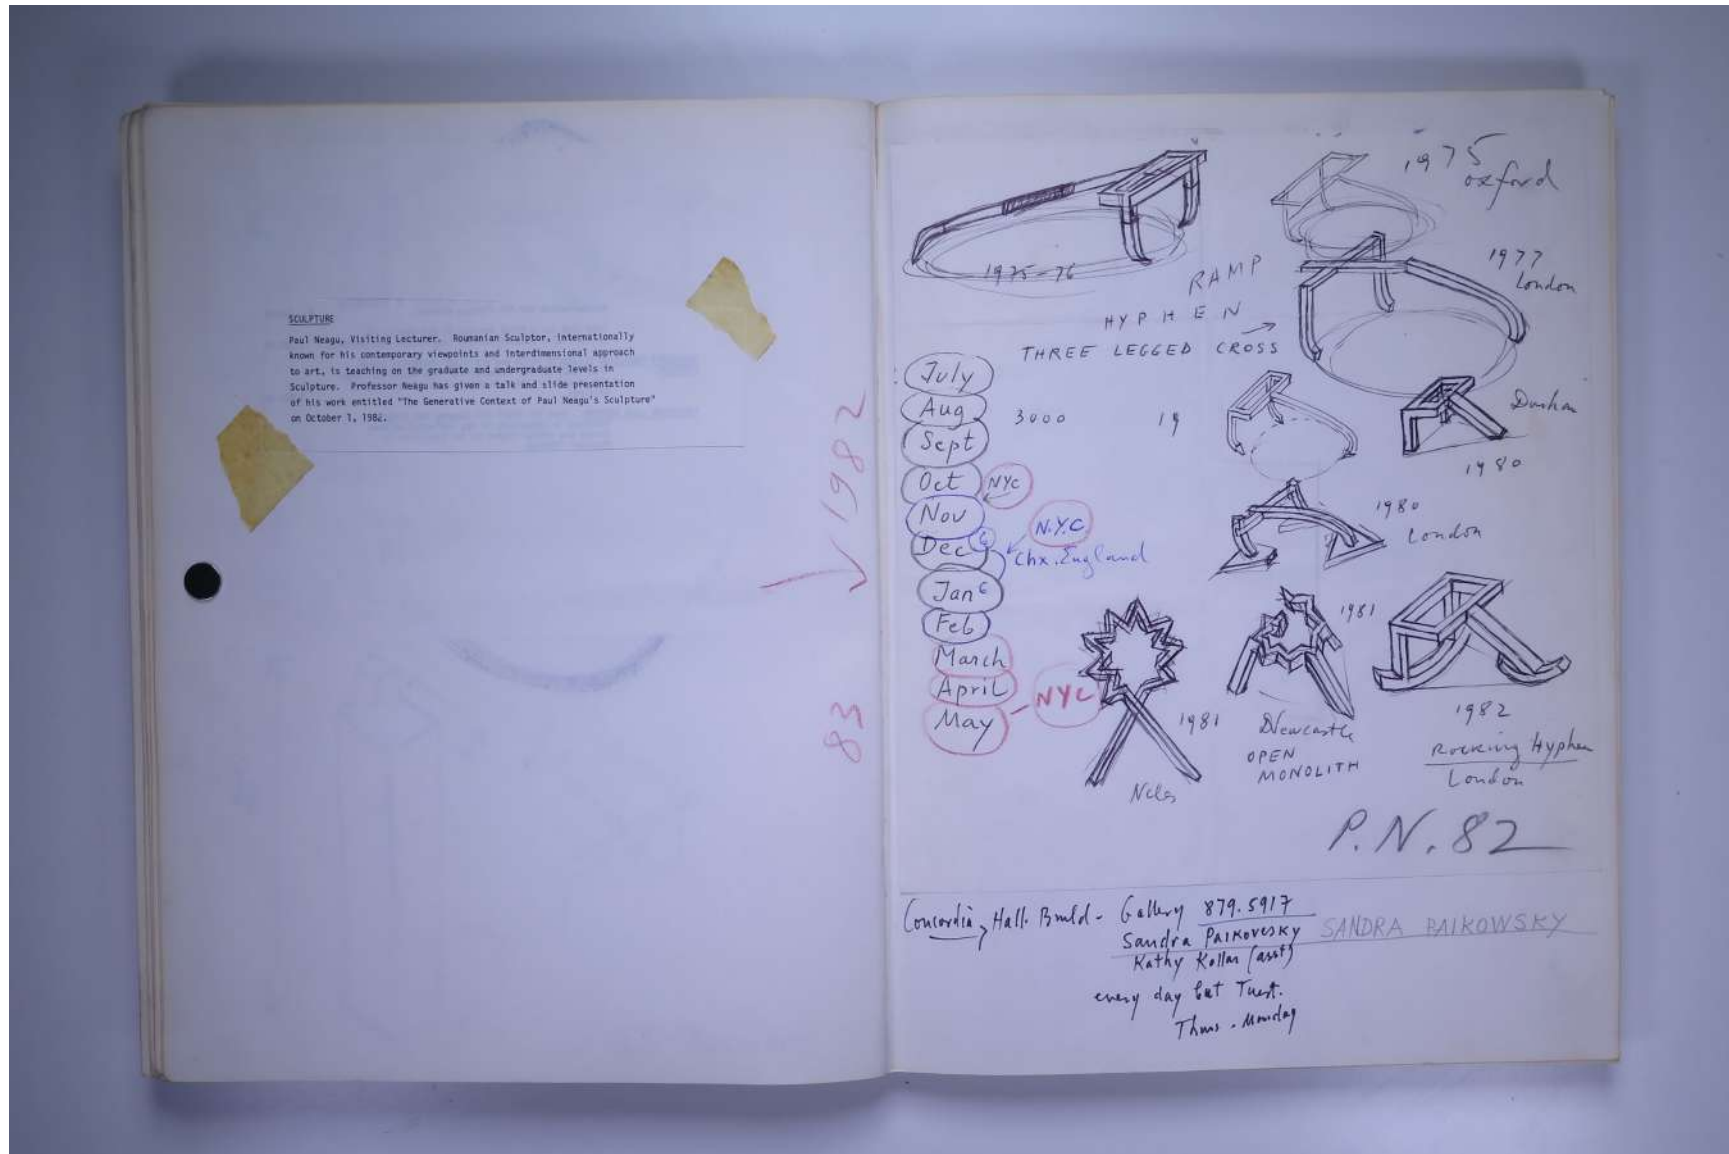 SCULPTURE
Paul Neagu, Visiting Lecturer. Roumanian Sculptor, internationally
known for his contemporary viewpoints and interdimensional approach
to art, is teaching on the graduate and undergraduate levels in
Sculpture. Professor Neagu has given a talk and slide presentation
of his work entitled "The Generative Context of Paul Neagu's Sculpture"
on October 1, 1982.
1982
83
1975
oxford
1975-76
RAMP
HYPHEN
THREE LEGGED CROSS
1977
London
July
Aug
3000
19
Sept
Oct
NYC
Nov
Dec
N.Y.C
Chx. England
Jan
Feb
March
April
May
NYC
1980
1980
London
1981
1981
Newcastle
OPEN
MONOLITH
1982
Rocking Hyphen
London
P.N. 82
Concordia, Hall. Build - Gallery 879.5917
Sandra PAIKOVESKY SANDRA PAIKOWSKY
Kathy Kollar (asst)
every day but Tuest.
Thurs - Monday